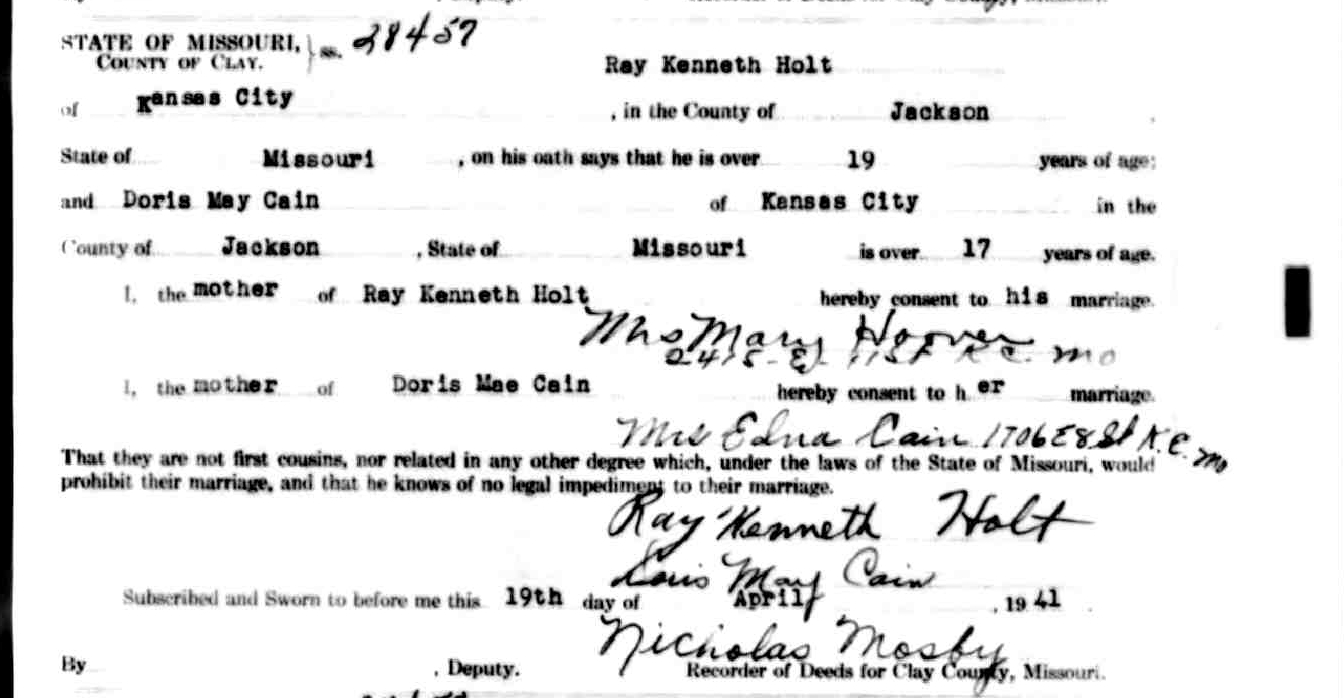 STATE OF MISSOURI, } ss. 28457
COUNTY OF CLAY.
Ray Kenneth Holt
of Kansas City , in the County of Jackson
State of Missouri , on his oath says that he is over 19 years of age;
and Doris May Cain of Kansas City in the
County of Jackson , State of Missouri is over 17 years of age.
I, the mother of Ray Kenneth Holt hereby consent to his marriage.
Mrs Mary Hoover
2415 E. 11 St K C. Mo
I, the mother of Doris Mae Cain hereby consent to her marriage.
Mrs Edna Cain 1706 E 8 St K.C. Mo
That they are not first cousins, nor related in any other degree which, under the laws of the State of Missouri, would
prohibit their marriage, and that he knows of no legal impediment to their marriage.
Ray Kenneth Holt
Doris May Cain
Subscribed and Sworn to before me this 19th day of April , 19 41
Nicholas Mosby
By , Deputy. Recorder of Deeds for Clay County, Missouri.